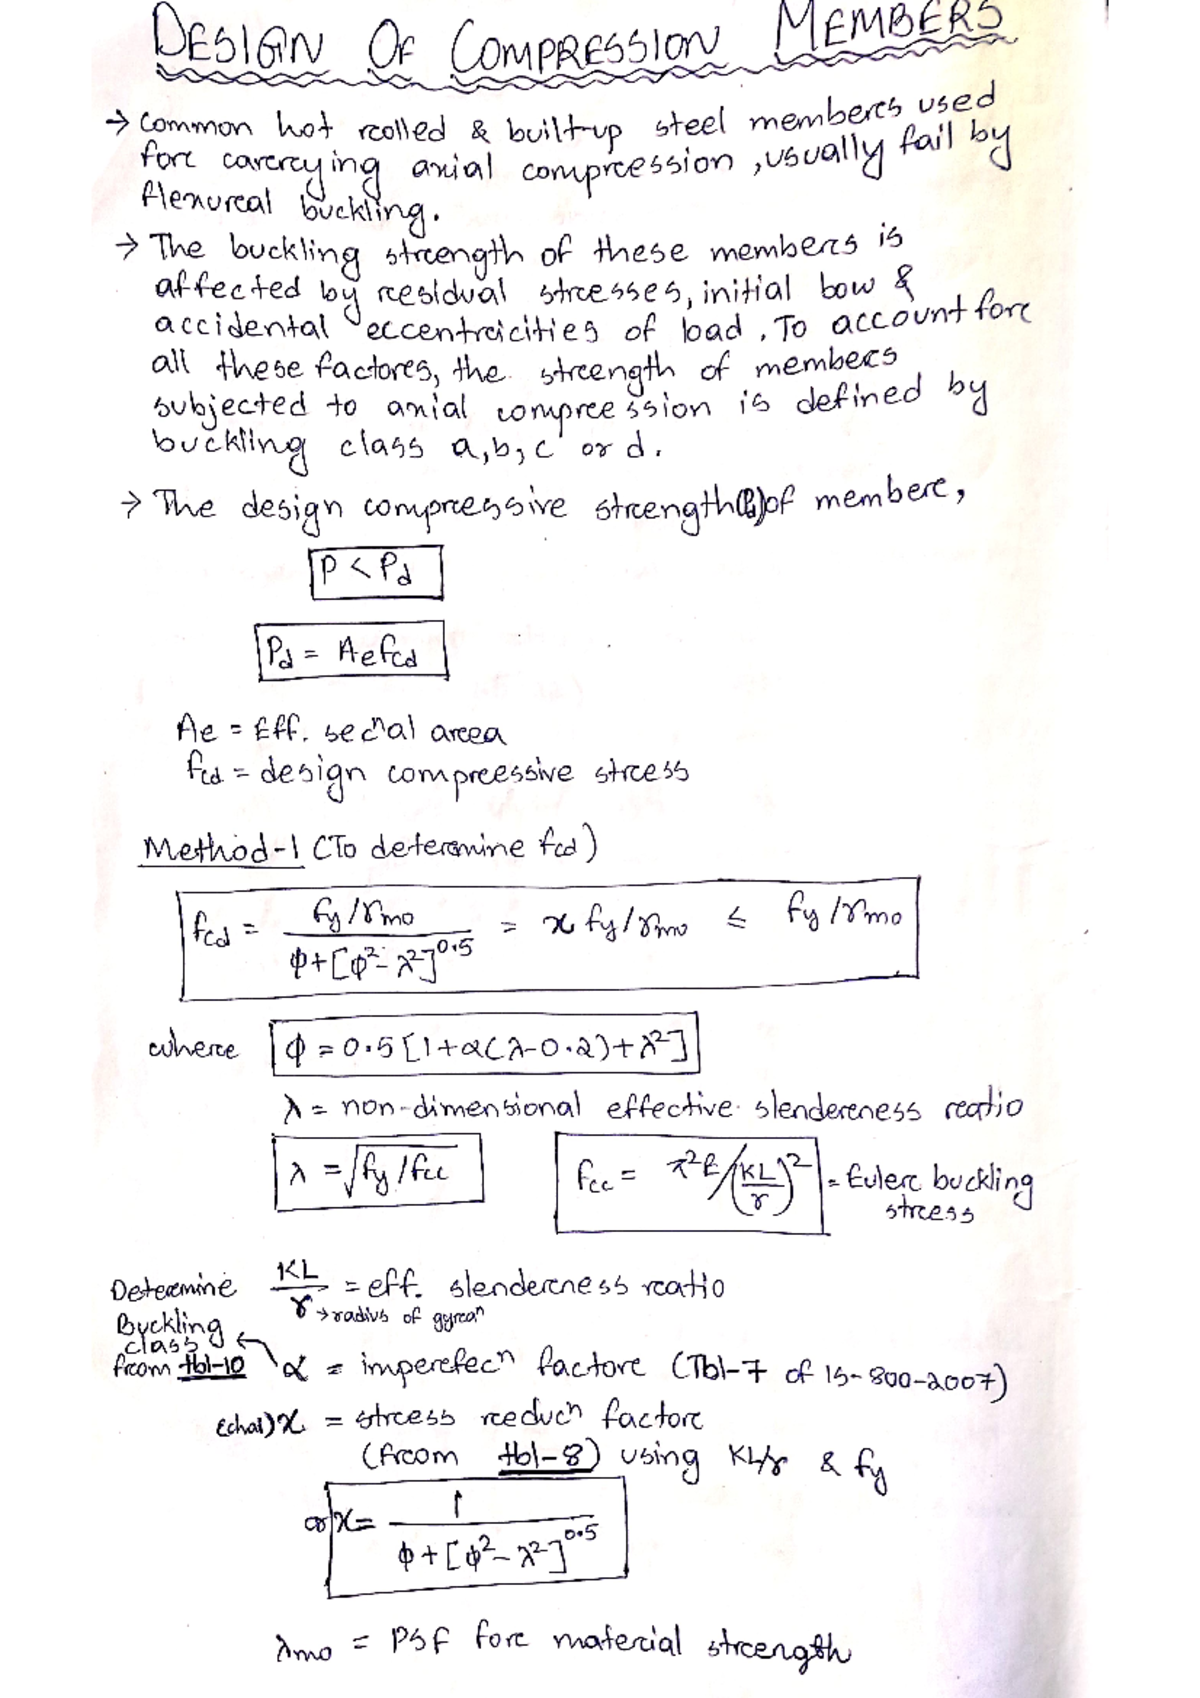 DESIGN OF COMPRESSION MEMBERS
→ Common hot rolled & built-up steel members used
for carrying axial compression, usually fail by
flexural buckling.
→ The buckling strength of these members is
affected by residual stresses, initial bow &
accidental eccentricities of load. To account for
all these factors, the strength of members
subjected to axial compression is defined by
buckling class a, b, c or d.
→ The design compressive strength (Pd) of member,
P < Pd
Pd = Ae fcd
Ae = Eff. secⁿal area
fcd = design compressive stress
Method-1 (To determine fcd)
fcd = fy/γmo / φ+[φ²-λ²]^0.5 = x fy/γmo ≤ fy/γmo
where φ = 0.5[1+α(λ-0.2)+λ²]
λ = non-dimensional effective slenderness ratio
λ = √fy/fcc fcc = π²E/(KL/r)² = Euler buckling
stress
Determine KL/r = eff. slenderness ratio
Buckling r → radius of gyraⁿ
class
from tbl-10 α = imperfecⁿ factor (Tbl-7 of IS-800-2007)
(chai) x = stress reducⁿ factor
(from tbl-8) using KL/r & fy
or x = 1 / φ+[φ²-λ²]^0.5
λmo = PSF for material strength